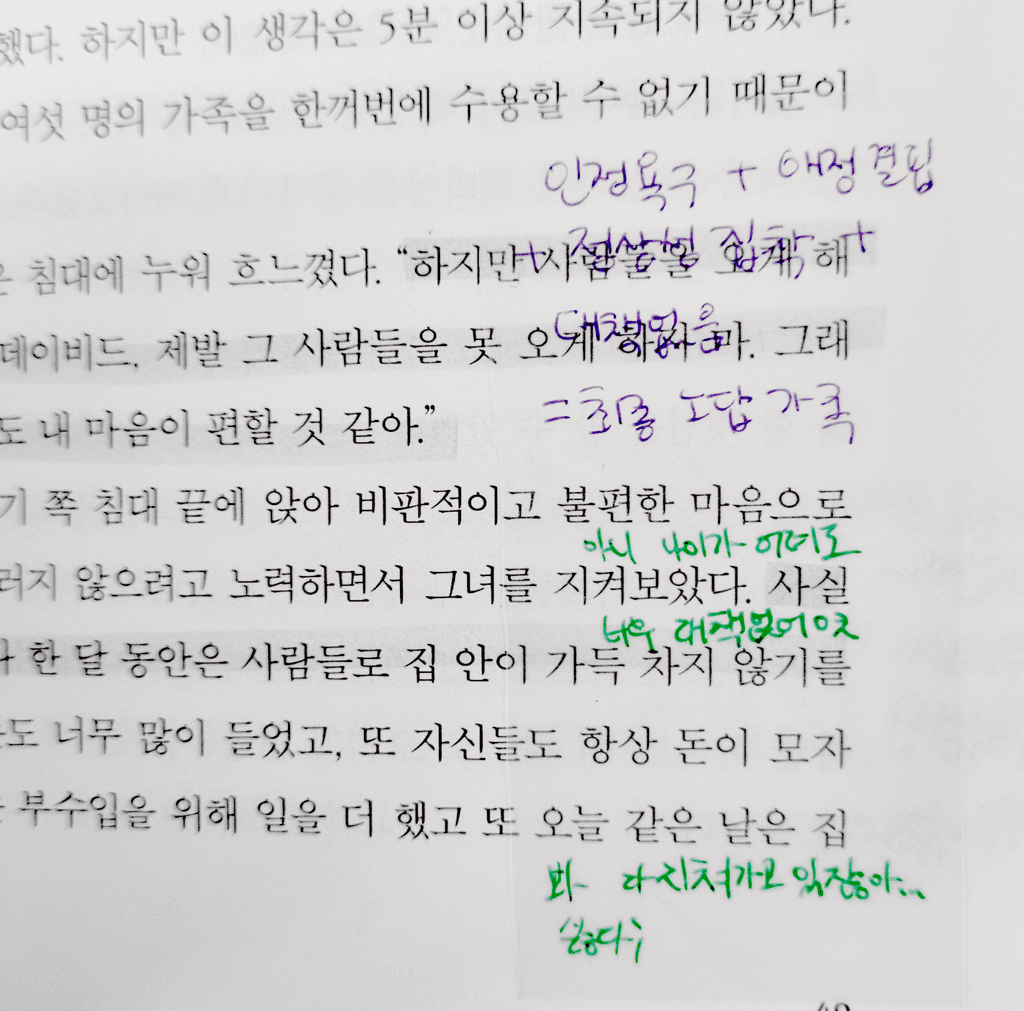 했다. 하지만 이 생각은 5분 이상 지속되지 않았다.
여섯 명의 가족을 한꺼번에 수용할 수 없기 때문이
인정욕구 + 애정결핍
은 침대에 누워 흐느꼈다. “하지만 사람들을 오게 해
+ 정상성 집착 +
데이비드, 제발 그 사람들을 못 오게 하 마. 그래
대책없음
도 내 마음이 편할 것 같아.”
= 최종 노답 가족
기 쪽 침대 끝에 앉아 비판적이고 불편한 마음으로
아니 나이가 어려도
러지 않으려고 노력하면서 그녀를 지켜보았다. 사실
너무 대책없이
한 달 동안은 사람들로 집 안이 가득 차지 않기를
도 너무 많이 들었고, 또 자신들도 항상 돈이 모자
부수입을 위해 일을 더 했고 또 오늘 같은 날은 집
봐 다 지쳐가고 있잖아...
싫다;